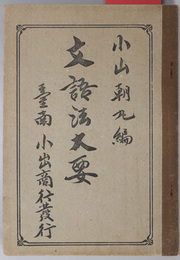 小山朝丸編
文語法大要
臺南 小出商行發行